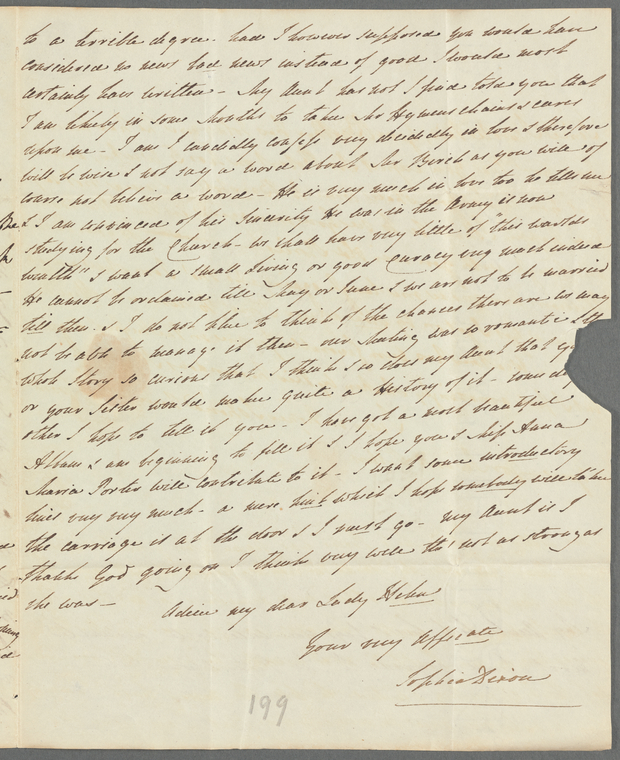 to a terrible degree. had I however supposed you would have
considered no news bad news instead of good I would most
certainly have written – My Aunt has not I find told you that
I am likely in some Months to take Mr Hymens chains & cares
upon me – I am I candidly confess very decidedly in love & therefore
will be wise & not say a word about Mr Birch as you will of
course not believe a word – He is very much in love too he tells me
& I am convinced of his sincerity He was in the Army is now
studying for the Church – we shall have very little of "this worlds
wealth" & want a small Living or good Curacy very much indeed
He cannot be ordained till May or June & we are not to be married
till then. & I do not like to think of the chances there are we may
not be able to manage it then – our Meeting was so romantic &
whole Story so curious that I think & so does my Aunt that
or your Sister would make quite a History of it – some
other I hope to tell it you – I have got a most beautiful
Album & am beginning to fill it & I hope you & Miss Anna
Maria Porter will contribute to it – I want some introductory
lines very very much – a mere hint which I hope somebody will take
the carriage is at the door & I must go – My Aunt is I
thank God going on I think very well tho' not as strong as
she was –
Adieu my dear Lady
Your very affecate
Sophia Dixon
199